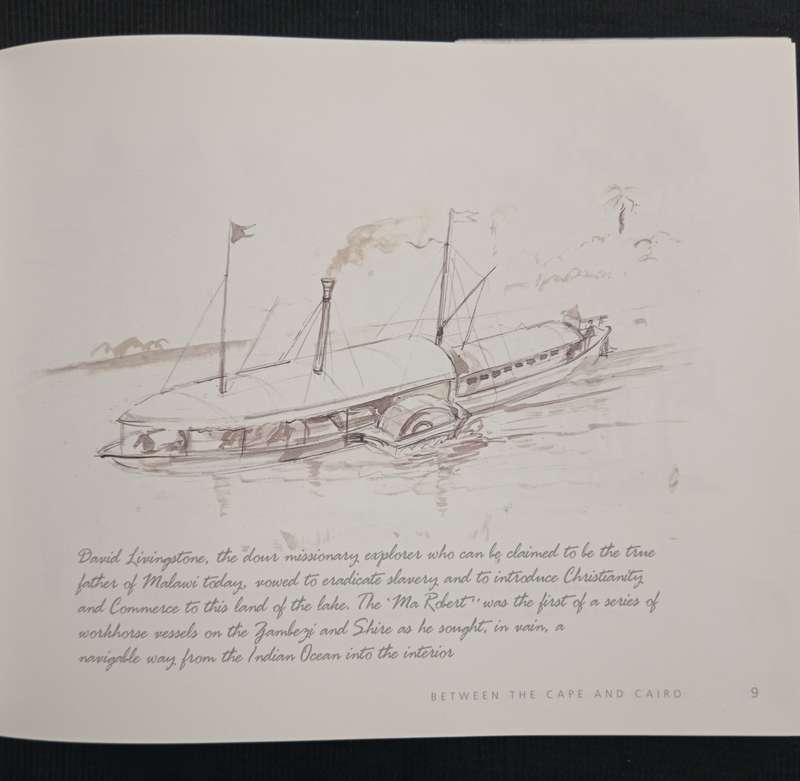 David Livingstone, the dour missionary explorer who can be claimed to be the true
father of Malawi today, vowed to eradicate slavery and to introduce Christianity
and Commerce to this land of the lake. The "Ma Robert" was the first of a series of
workhorse vessels on the Zambezi and Shire as he sought, in vain, a
navigable way from the Indian Ocean into the interior
BETWEEN THE CAPE AND CAIRO 9